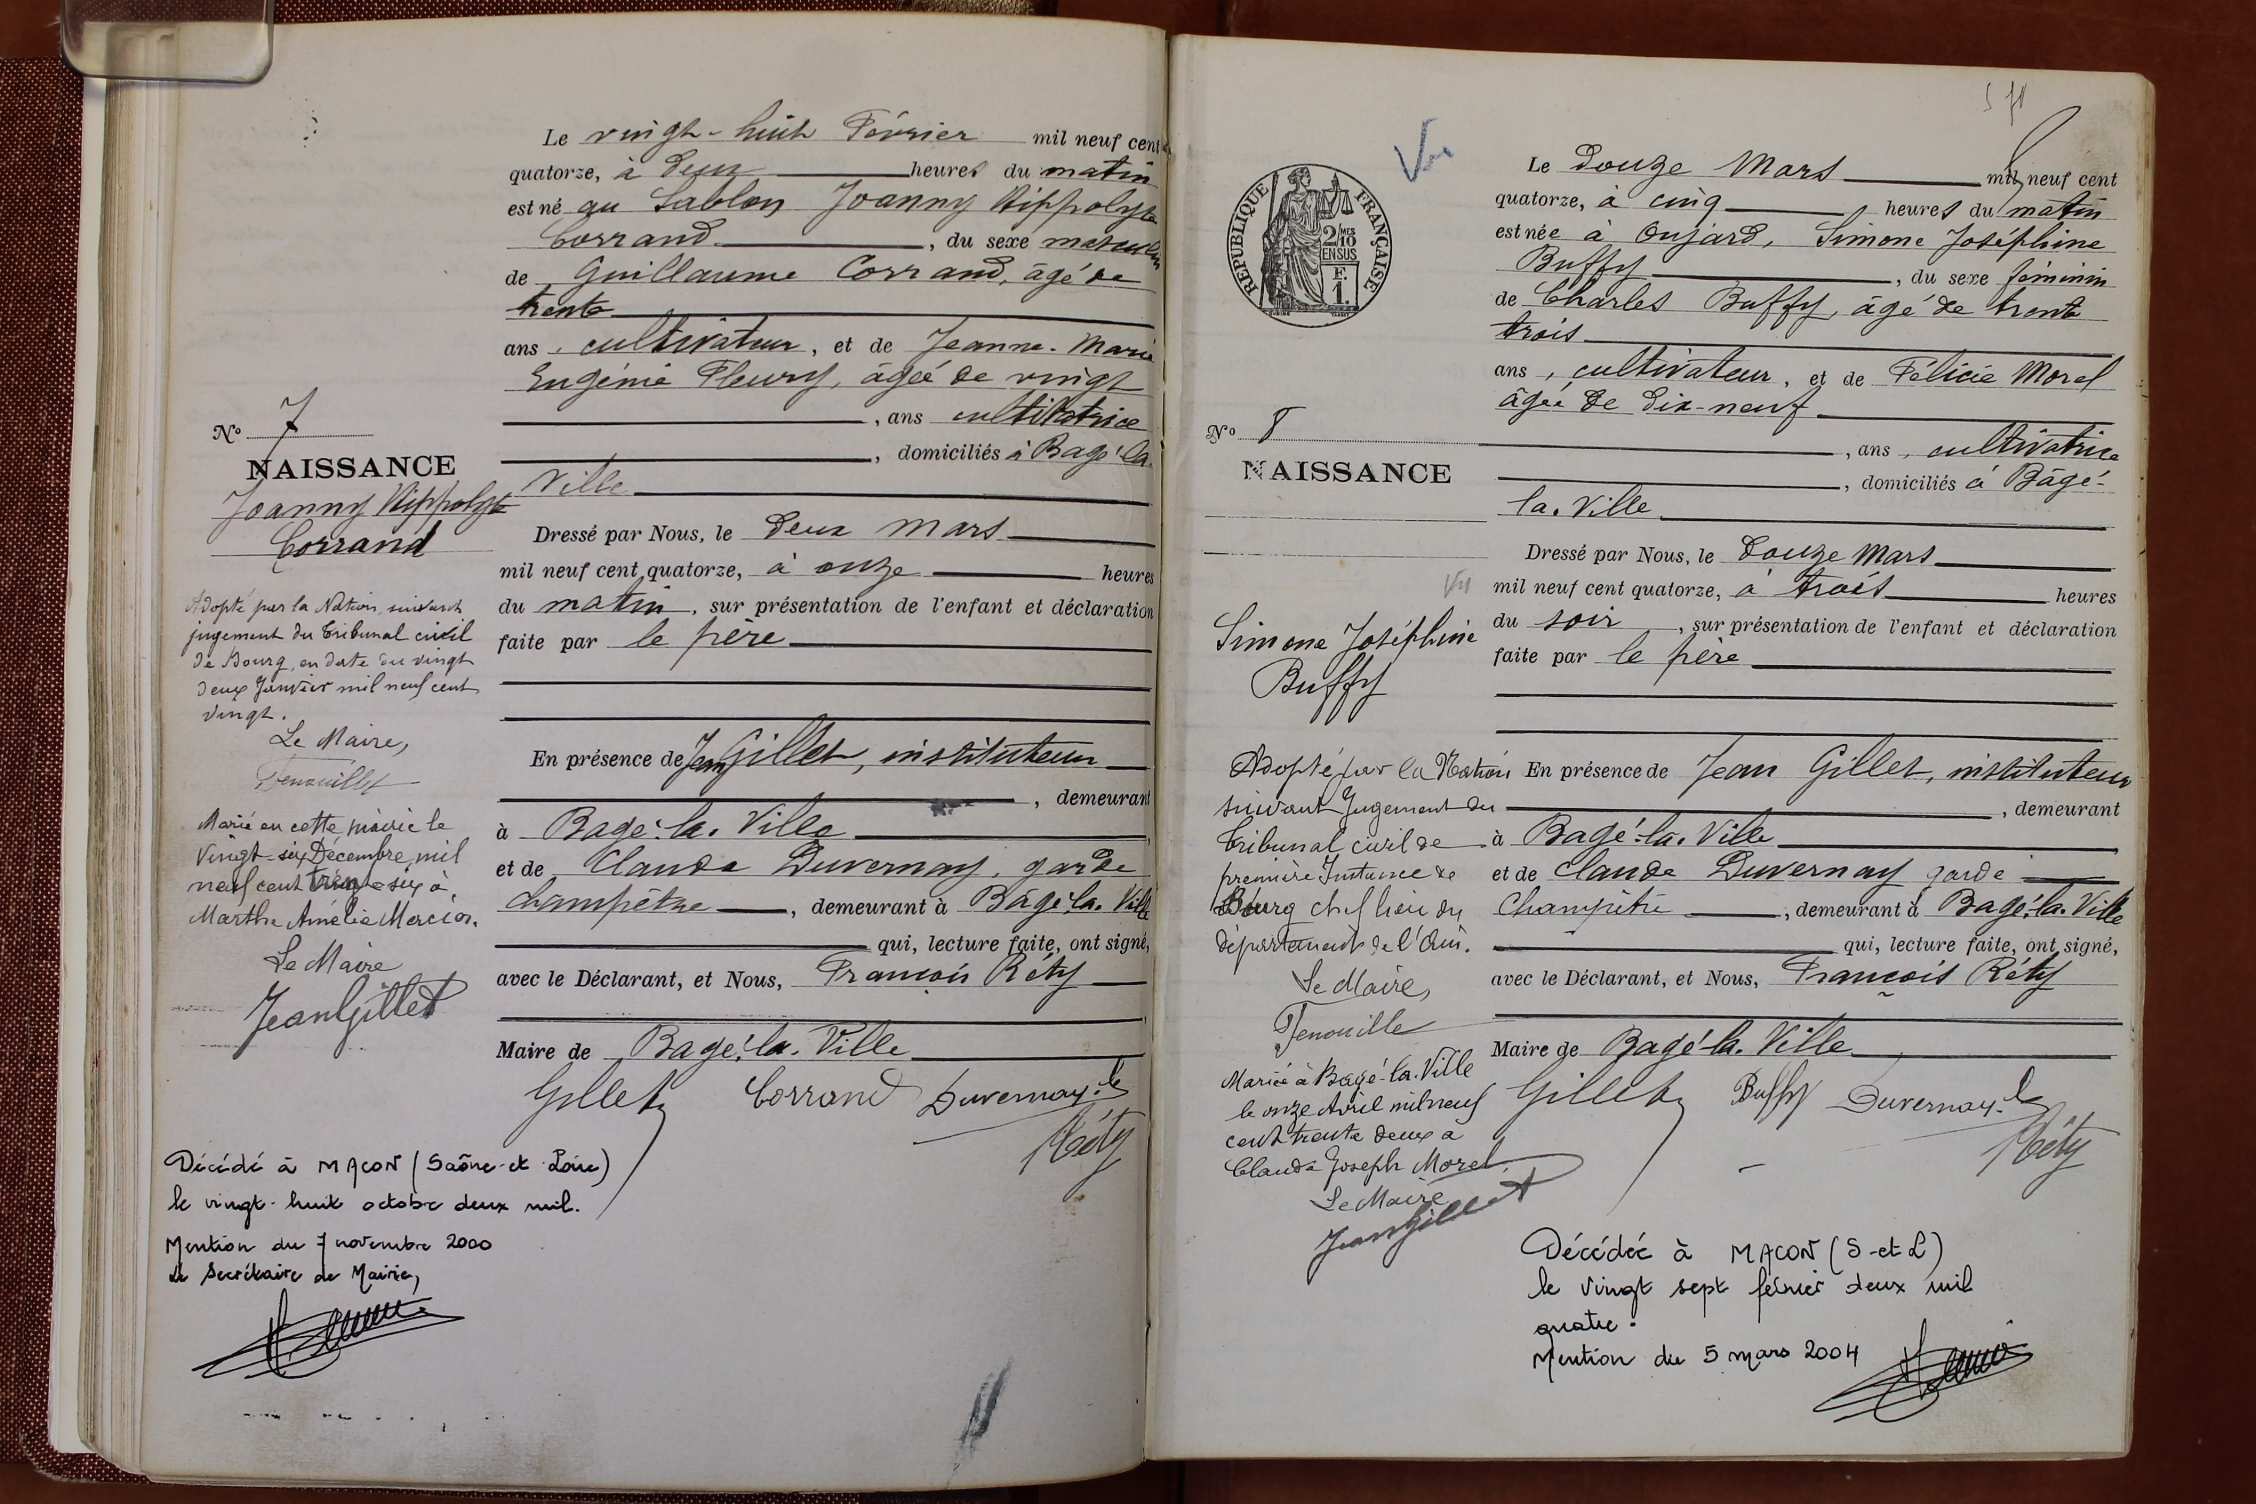 Le vingt-huit Février mil neuf cent
quatorze, à deux heures du matin
est né au Sablon Joanny Hippolyte
Corrand, du sexe masculin
de Guillaume Corrand, âgé de
trente
ans, cultivateur, et de Jeanne-Marie
Eugénie Fleury, âgée de vingt
, ans cultivatrice
, domiciliés à Bagé-la-
Ville
Dressé par Nous, le deux mars
mil neuf cent quatorze, à onze heures
du matin, sur présentation de l'enfant et déclaration
faite par le père
En présence de Jean Gillet, instituteur
, demeurant
à Bagé-la-Ville
et de Claude Duvernay, garde
champêtre, demeurant à Bâgé-la-Ville
qui, lecture faite, ont signé,
avec le Déclarant, et Nous, François Réty
Maire de Bagé-la-Ville
Gillet Corrand Duvernay
Réty
No 7
NAISSANCE
Joanny Hippolyte
Corrand
Adopté par la Nation suivant
jugement du Tribunal civil
de Bourg, en date du vingt
deux Janvier mil neuf cent
vingt.
Le Maire,
Fenouillet
Marié en cette mairie le
vingt-six Décembre mil
neuf cent trente six à
Marthe Amélie Mercier.
Le Maire
Jean Gillet
Décédé à MACON (Saône-et-Loire)
le vingt-huit octobre deux mil.
Mention du 7 novembre 2000
Le Secrétaire de Mairie,
Vu
RÉPUBLIQUE FRANÇAISE
2/10MES
EN SUS
F.
1.
Le douze Mars mil neuf cent
quatorze, à cinq heures du matin
est née à Oujard, Simone Joséphine
Buffy, du sexe féminin
de Charles Buffy, âgé de trente
trois
ans, cultivateur, et de Félicie Morel
âgée de dix-neuf
, ans, cultivatrice
, domiciliés à Bâgé-
la-Ville
Dressé par Nous, le douze Mars
mil neuf cent quatorze, à trois heures
du soir, sur présentation de l'enfant et déclaration
faite par le père
En présence de Jean Gillet, instituteur
, demeurant
à Bagé-la-Ville
et de Claude Duvernay garde
Champêtre, demeurant à Bagé-la-Ville
qui, lecture faite, ont signé,
avec le Déclarant, et Nous, François Réty
Maire de Bagé-la-Ville
Gillet Buffy Duvernay
Réty
No 8
NAISSANCE
Vu
Simone Joséphine
Buffy
Adopté par la Nation
suivant Jugement du
Tribunal civil de
première Instance de
Bourg chef lieu du
département de l'Ain.
Le Maire,
Fenouille
Mariée à Bagé-la-Ville
le onze Avril mil neuf
cent trente deux à
Claude Joseph Morel.
Le Maire
Jean Gillet
Décédée à MACON (S-et-L)
le vingt sept février deux mil
quatre.
Mention du 5 mars 2004